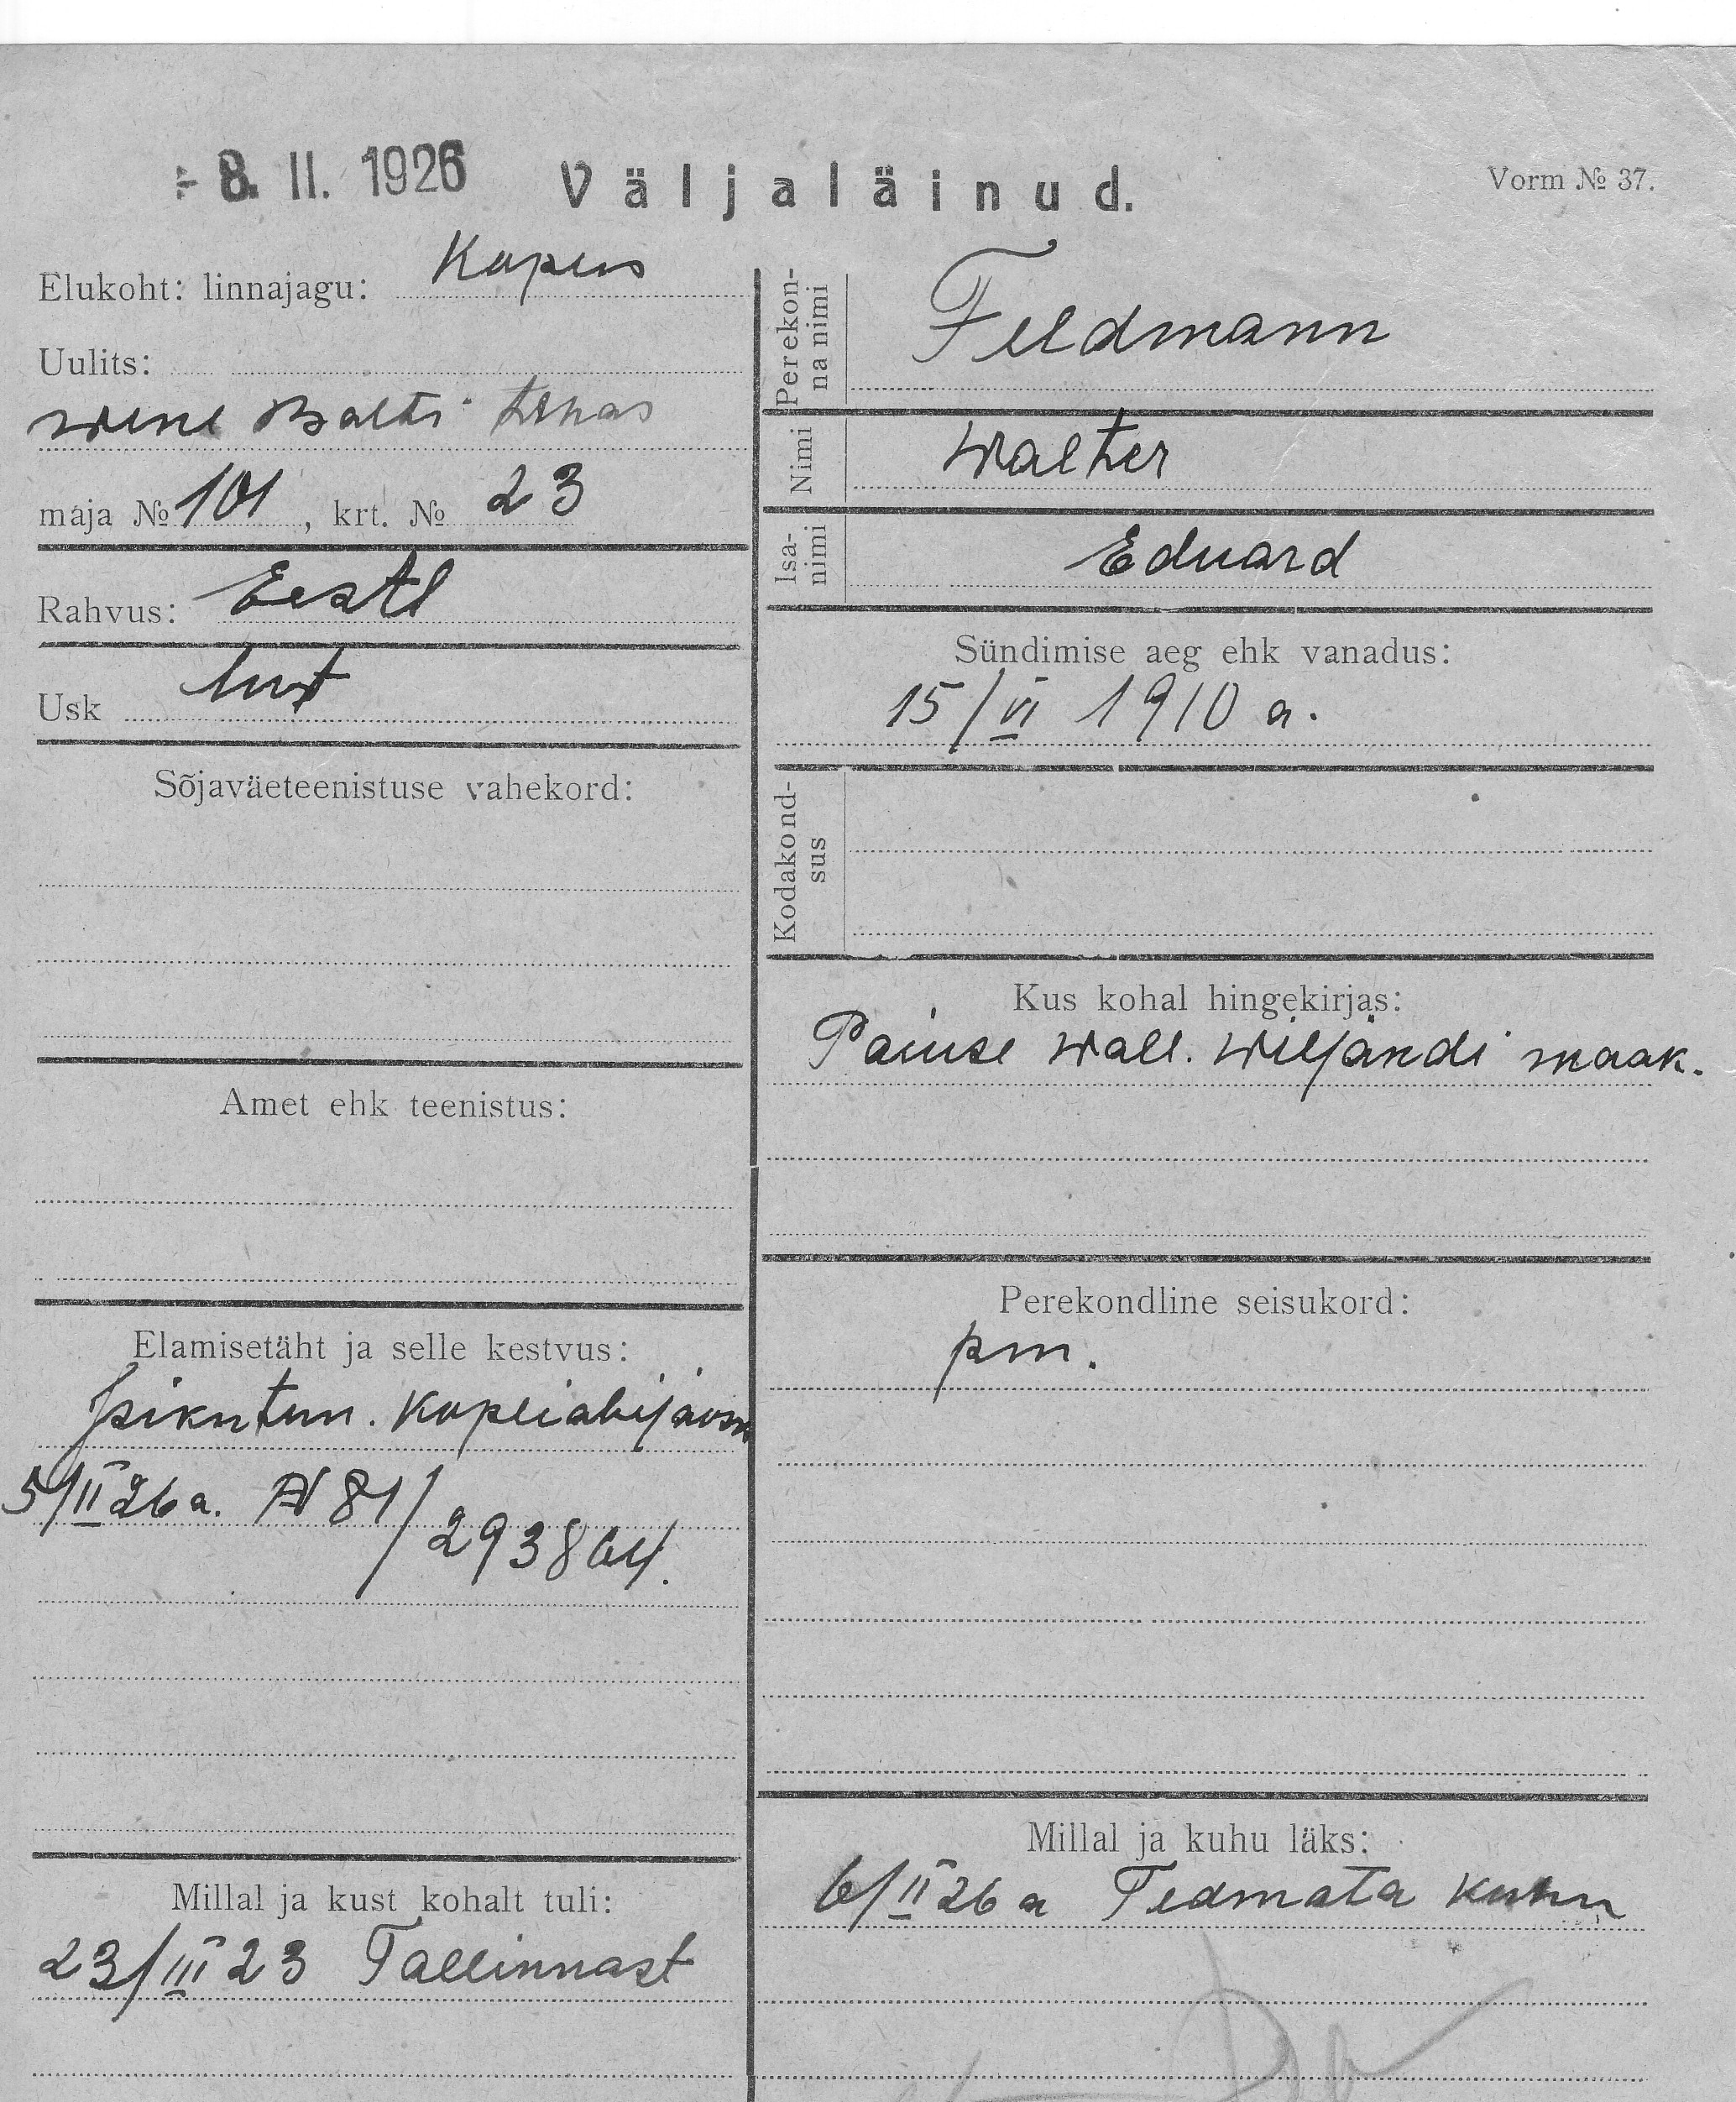 - 8. II. 1926
Väljaläinud.
Vorm № 37.
Elukoht: linnajagu: Koplis
Uulits:
Wene Balti tehas
maja № 101, krt. № 23
Rahvus: Eesti
Usk lut
Sõjaväeteenistuse vahekord:
Amet ehk teenistus:
Elamisetäht ja selle kestvus:
Isikutun. Kopliabijaosk
5/II 26 a. N 81/293864.
Millal ja kust kohalt tuli:
23/III 23 Tallinnast
Perekon-
na nimi
Feldmann
Nimi
Walter
Isa-
nimi
Eduard
Sündimise aeg ehk vanadus:
15/VI 1910 a.
Kodakond-
sus
Kus kohal hingekirjas:
wall. Wiljandi maak.
Perekondline seisukord:
pm.
Millal ja kuhu läks:
6/II 26 a Tedmata kuhu